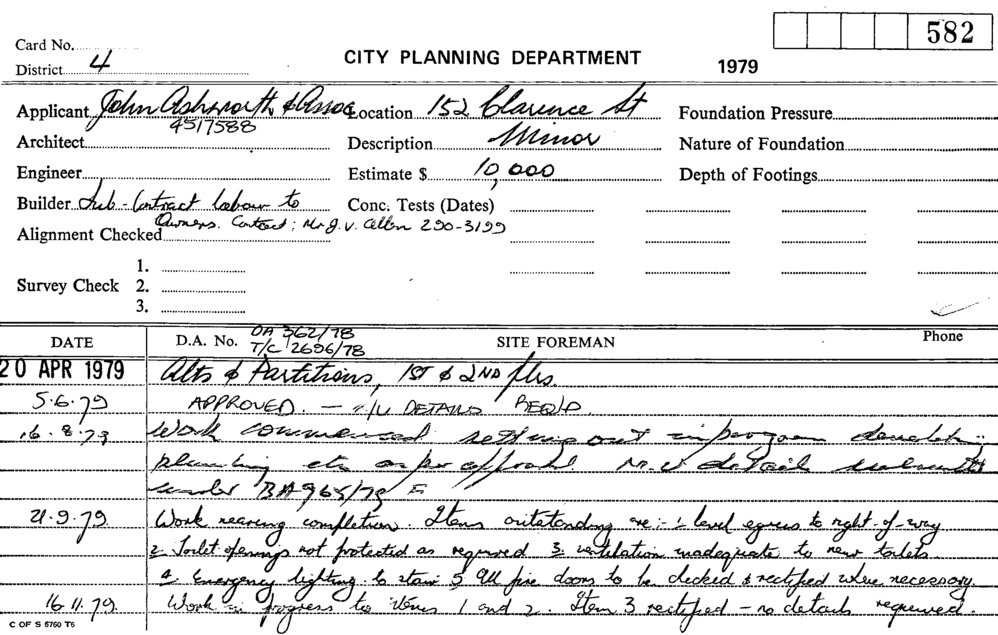 582
Card No.
CITY PLANNING DEPARTMENT 1979
District 4
Applicant John Ashworth & Assoc Location 152 Clarence St Foundation Pressure
4517588
Architect Description Minor Nature of Foundation
Engineer Estimate $ 10,000 Depth of Footings
Builder Sub-Contract labour to Conc. Tests (Dates)
Owners. Contact: Mr J. V. Allen 290-3199
Alignment Checked
1.
Survey Check 2.
3.
DATE D.A. No. DA 362/78 SITE FOREMAN Phone
T/C 2696/78
20 APR 1979 Alts & Partitions, 1ST & 2ND flrs.
5.6.79 APPROVED. — DETAILS REQ'D.
16.8.79 Work commenced setting out in progress
plumbing etc as per approval details
under BA 965/79
21.9.79 Work nearing completion. Items outstanding are:- 1 level egress to right-of-way
2 Toilet openings not protected as required 3 ventilation inadequate to new toilets
4 Emergency lighting to stair 5 All fire doors to be checked & rectified where necessary
16.11.79. Work in progress to items 1 and 2. Item 3 rectified - no details required.
C OF S 5760 T5